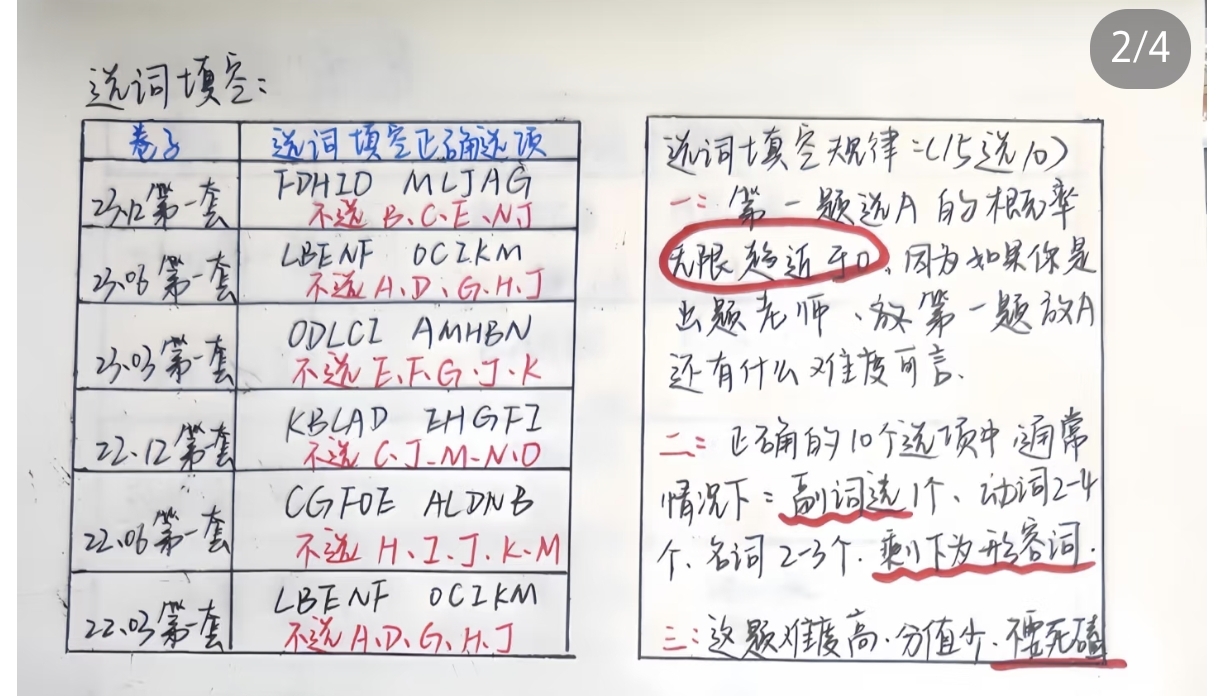 2/4
选词填空:
卷子 选词填空正确选项
23.12第一套 FDHIO MLJAG
不选 B、C、E、N、J
23.06第一套 LBENF OCIKM
不选 A、D、G、H、J
23.03第一套 ODLCI AMHBN
不选 E、F、G、J、K
22.12第一套 KBLAD EHGFI
不选 C、J、M、N、O
22.06第一套 CGFOE ALDNB
不选 H、I、J、K、M
22.03第一套 LBENF OCIKM
不选 A、D、G、H、J
选词填空规律:(15选10)
一:第一题选A的概率
无限趋近于0、因为如果你是
出题老师、放第一题放A
还有什么难度可言.
二:正确的10个选项中,通常
情况下:副词选1个、动词2-4
个、名词2-3个.剩下为形容词.
三:这题难度高.分值少.不要死磕